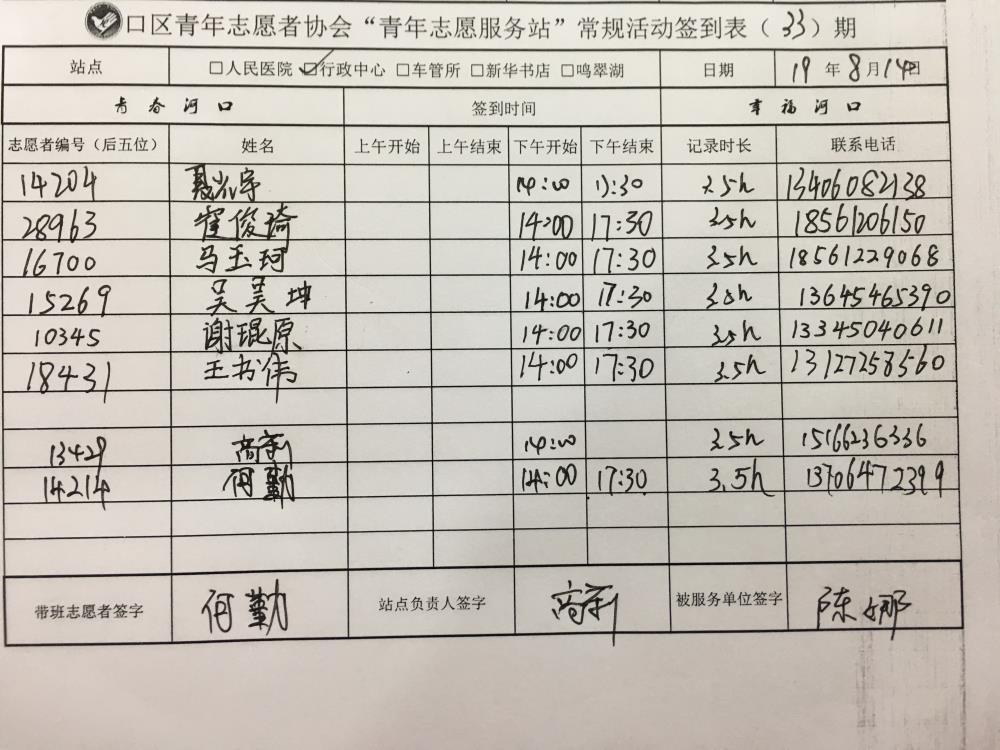 口区青年志愿者协会“青年志愿服务站”常规活动签到表（33）期
站点 □人民医院 ☑行政中心 □车管所 □新华书店 □鸣翠湖 日期 19年8月14日
青春河口 签到时间 幸福河口
志愿者编号（后五位） 姓名 上午开始 上午结束 下午开始 下午结束 记录时长 联系电话
14204 14:00 17:30 3.5h 13406082138
28963 霍俊琦 14:00 17:30 3.5h 18561206150
16700 马玉珂 14:00 17:30 3.5h 18561229068
15269 吴昊坤 14:00 17:30 3.5h 13645465390
10345 谢琨原 14:00 17:30 3.5h 13345040611
18431 王书伟 14:00 17:30 3.5h 13127258560
13429 14:00 3.5h 15166236336
14214 何勤 14:00 17:30 3.5h 13706472399
带班志愿者签字 何勤 站点负责人签字 被服务单位签字 陈娜